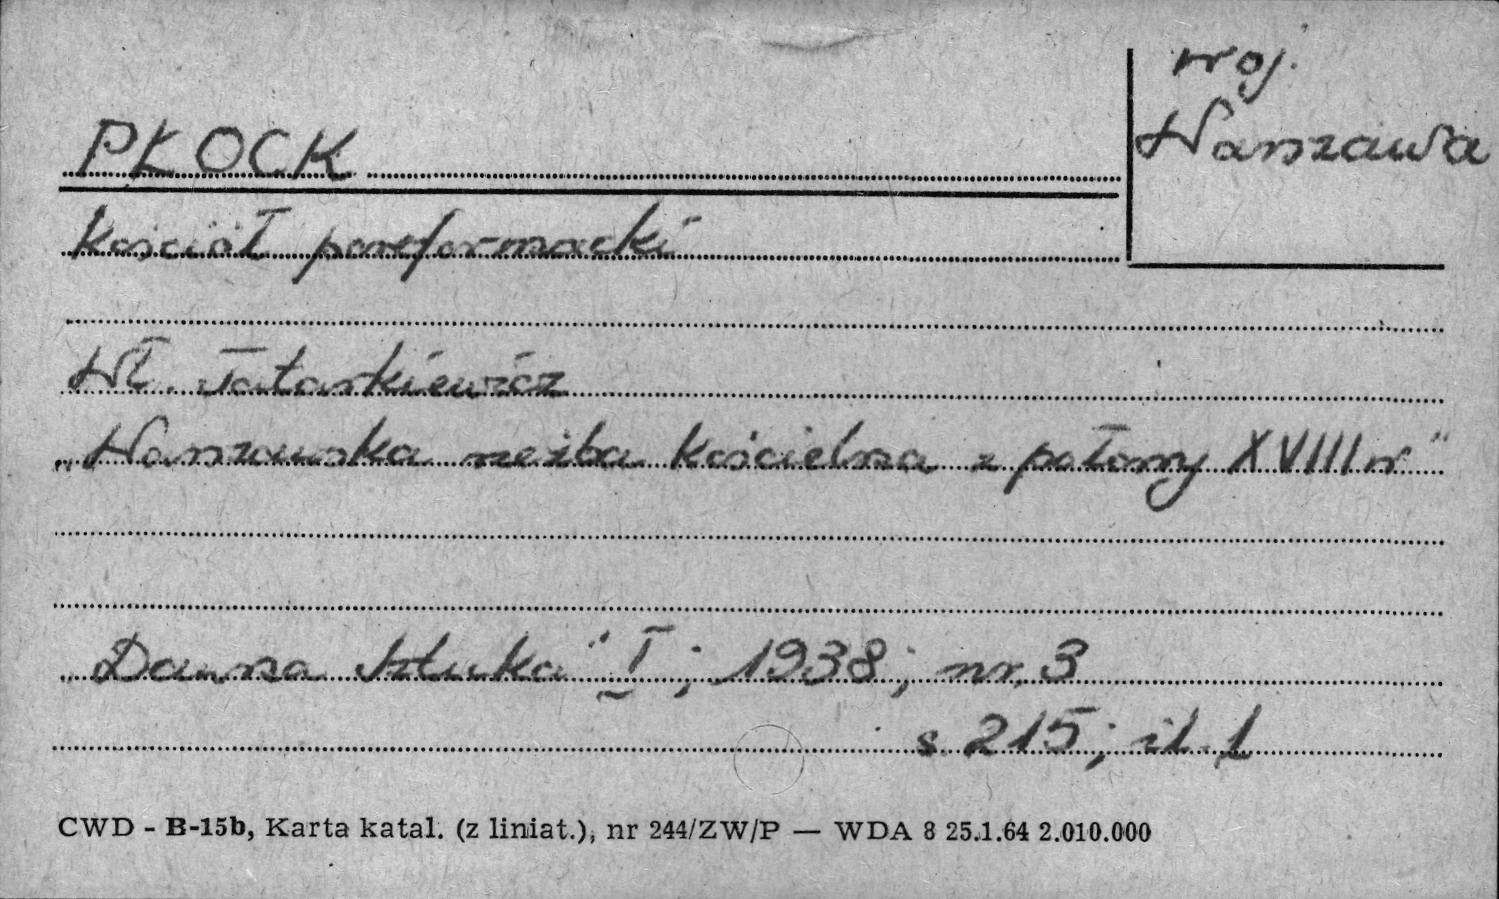 woj.
Warszawa
PŁOCK
Kościół poreformacki
Wł. Tatarkiewicz
„Warszawska rzeźba kościelna z połowy XVIII w"
„Dawna Sztuka" I; 1938; nr. 3
s. 215; il. 1
CWD - B-15b, Karta katal. (z liniat.), nr 244/ZW/P — WDA 8 25.1.64 2.010.000